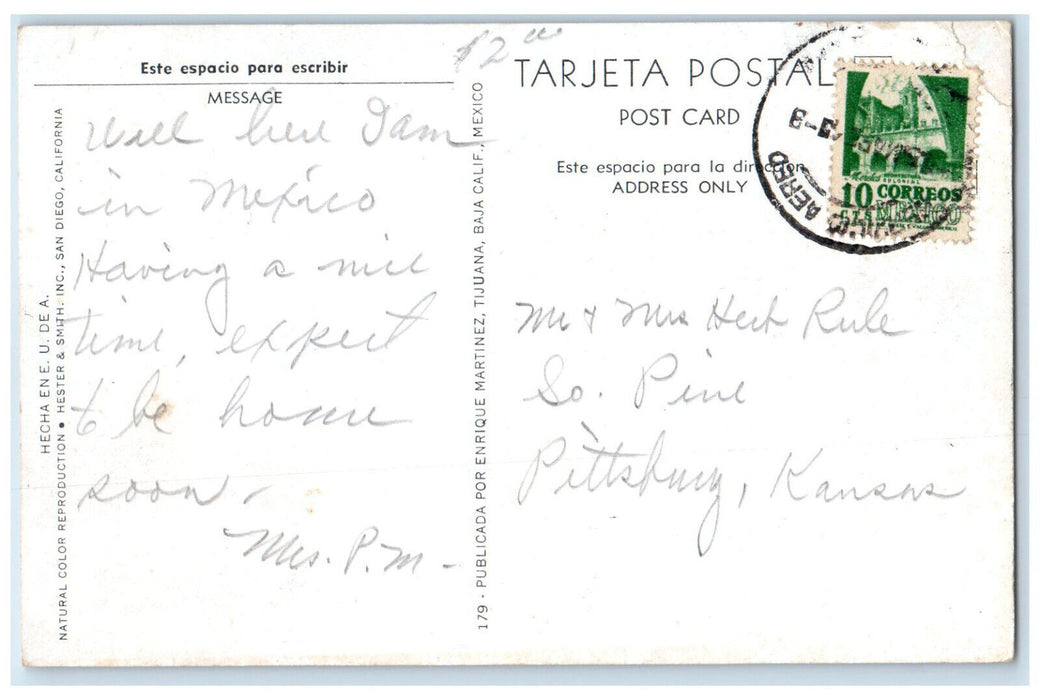 $2.00
Este espacio para escribir
MESSAGE
Well here I am
in Mexico
Having a nice
time, expect
to be home
soon -
Mrs. P.M -
HECHA EN E. U. DE A.
NATURAL COLOR REPRODUCTION • HESTER & SMITH, INC., SAN DIEGO, CALIFORNIA
179 - PUBLICADA POR ENRIQUE MARTINEZ, TIJUANA, BAJA CALIF., MEXICO
TARJETA POSTAL
POST CARD
Este espacio para la dirección
ADDRESS ONLY
AEREO
COLONIAL
10 CORREOS
CTS MEXICO
Mr & Mrs Herb Rule
So. Pine
Pittsburg, Kansas